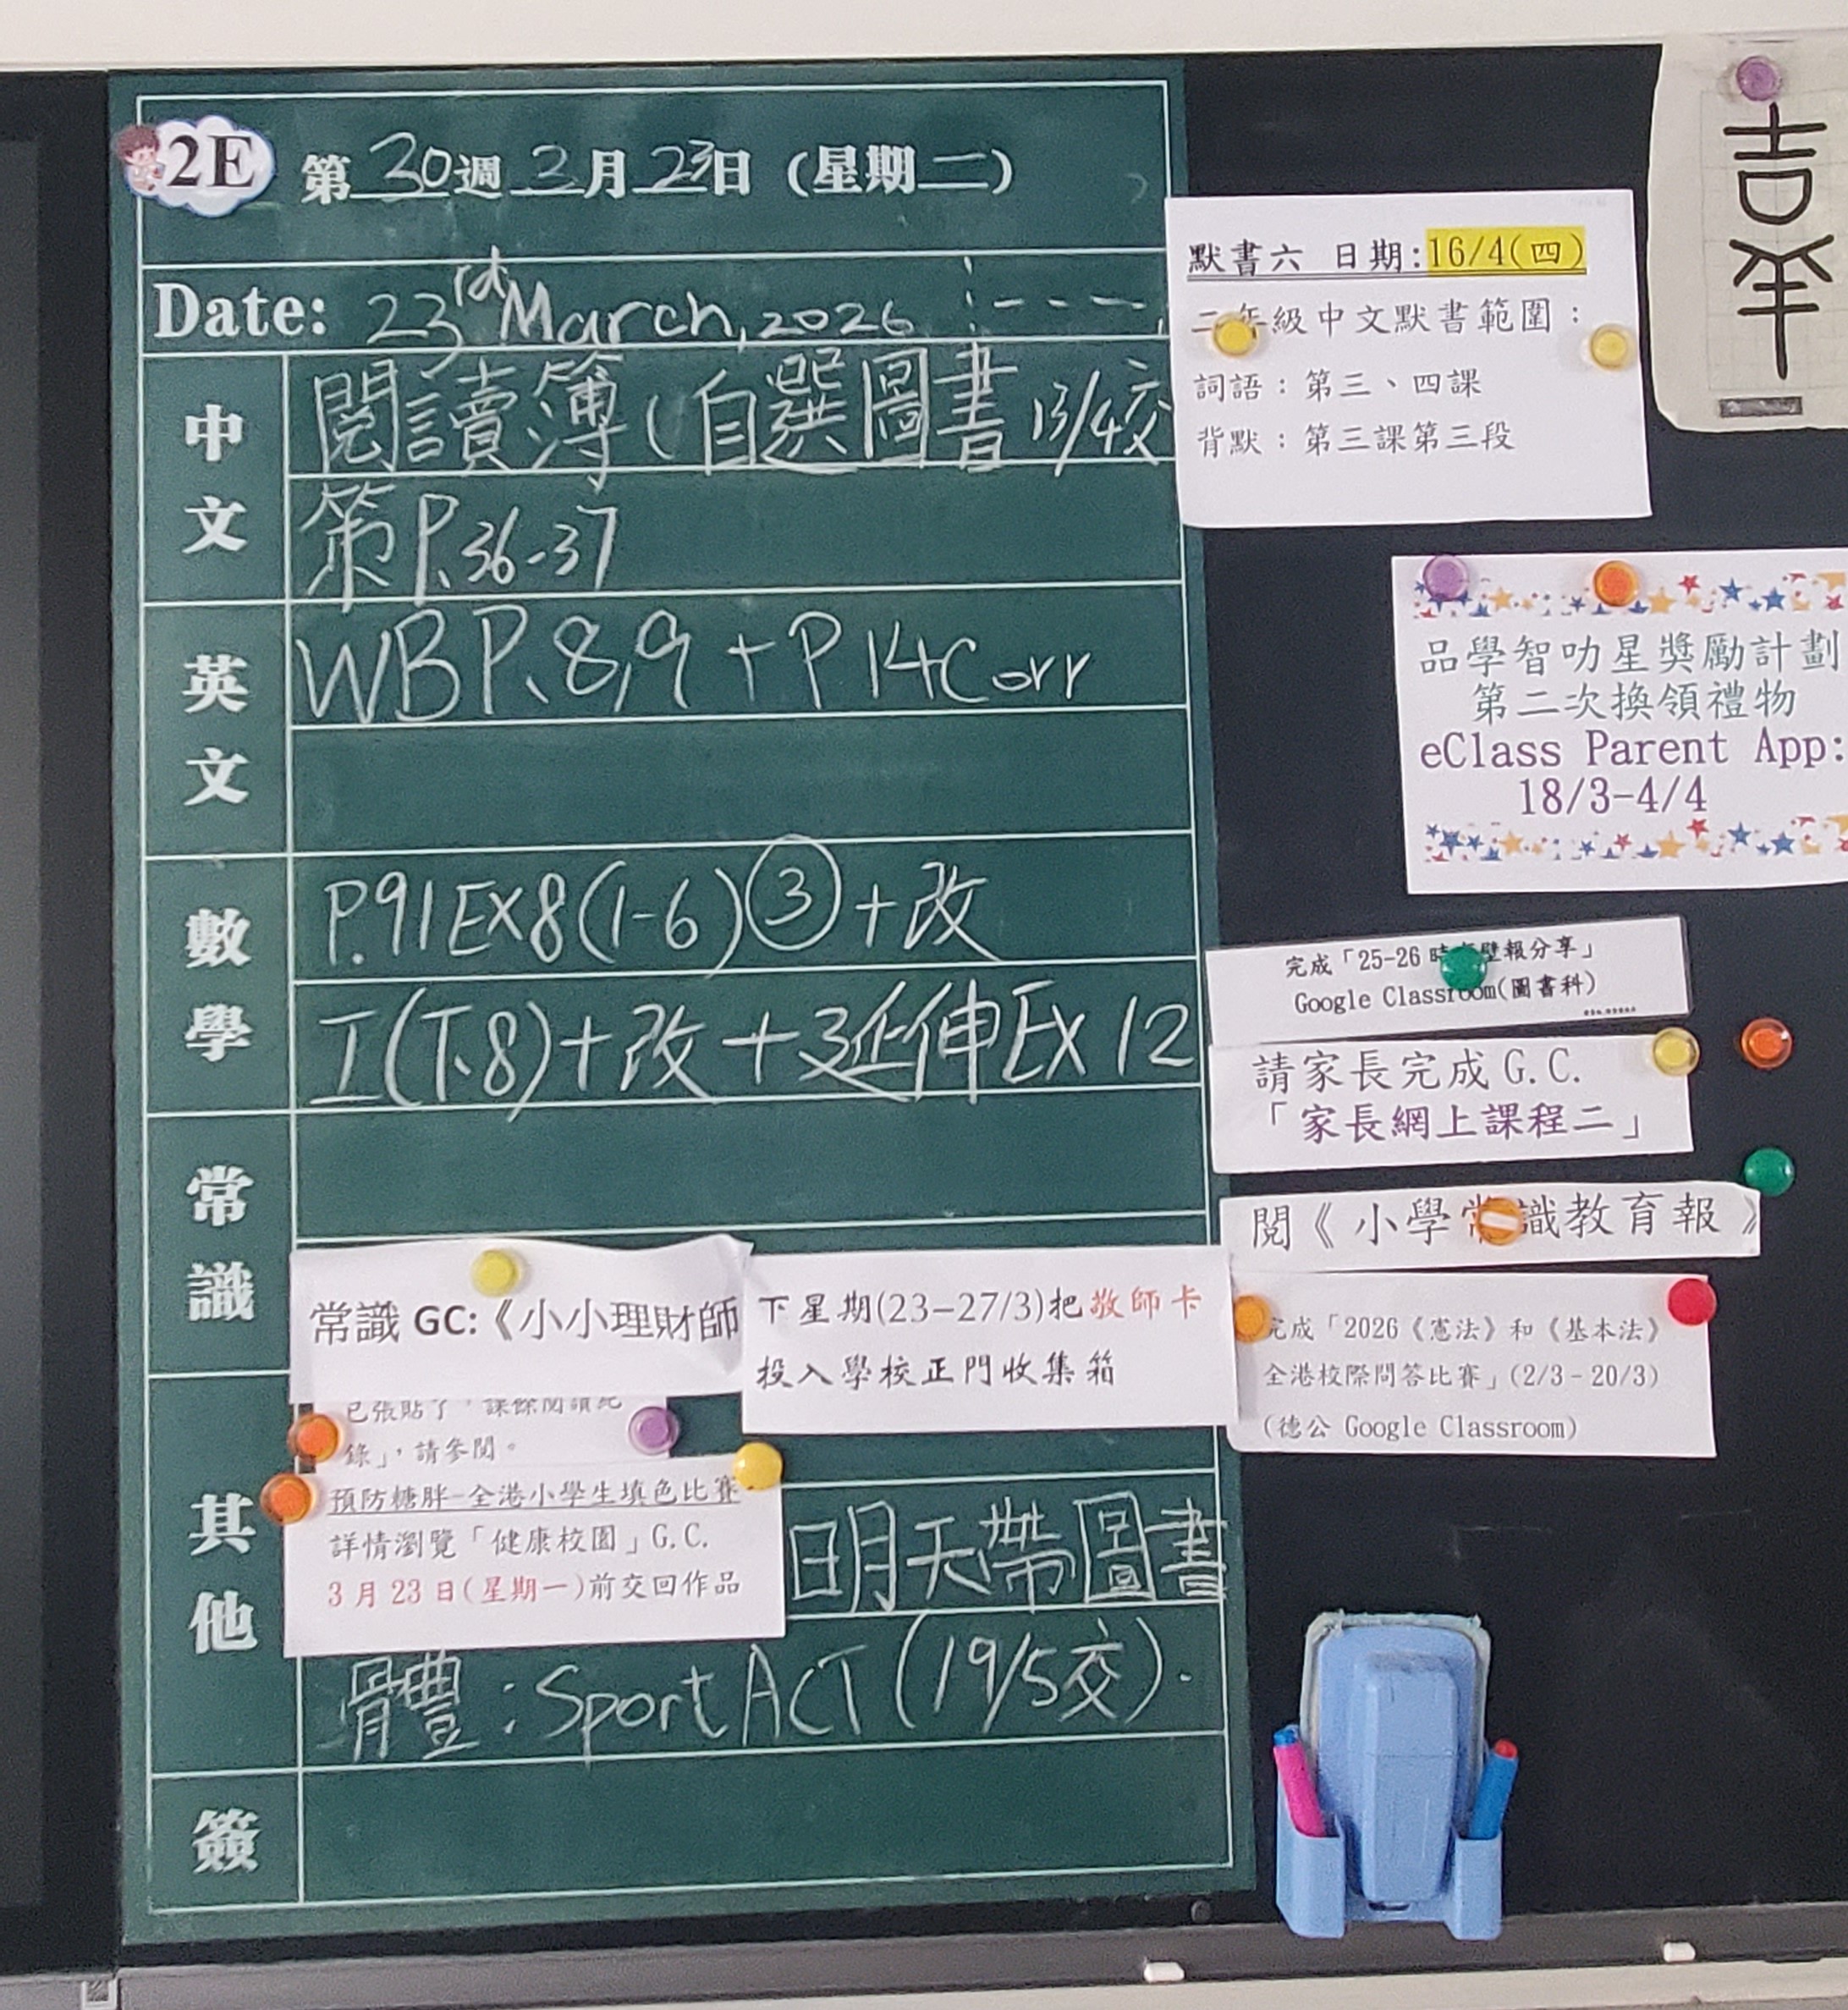 2E 第 30 週 3 月 23 日 (星期 二)
Date: 23rd March, 2026
中文
閱讀簿(自選圖書 13/4交
第P.36-37
英文
WB P.8,9 + P 14 Corr
數學
P.91 Ex8(1-6)③+改
工(下.8)+改+延伸Ex 12
常識
常識 GC:《小小理財師
下星期(23-27/3)把敬師卡
投入學校正門收集箱
其他
錄」,請參閱。
預防糖胖-全港小學生填色比賽
詳情瀏覽「健康校園」G.C.
3月23日(星期一)前交回作品
明天帶圖書
體:Sport ACT (19/5交).
簽
默書六 日期:16/4(四)
二年級中文默書範圍:
詞語:第三、四課
背默:第三課第三段
吉祥
品學智叻星獎勵計劃
第二次換領禮物
eClass Parent App:
18/3-4/4
完成「25-26 壁報分享」
Google Classroom(圖書科)
請家長完成 G.C.
「家長網上課程二」
閱《小學常識教育報》
完成「2026《憲法》和《基本法》
全港校際問答比賽」(2/3-20/3)
(德公 Google Classroom)